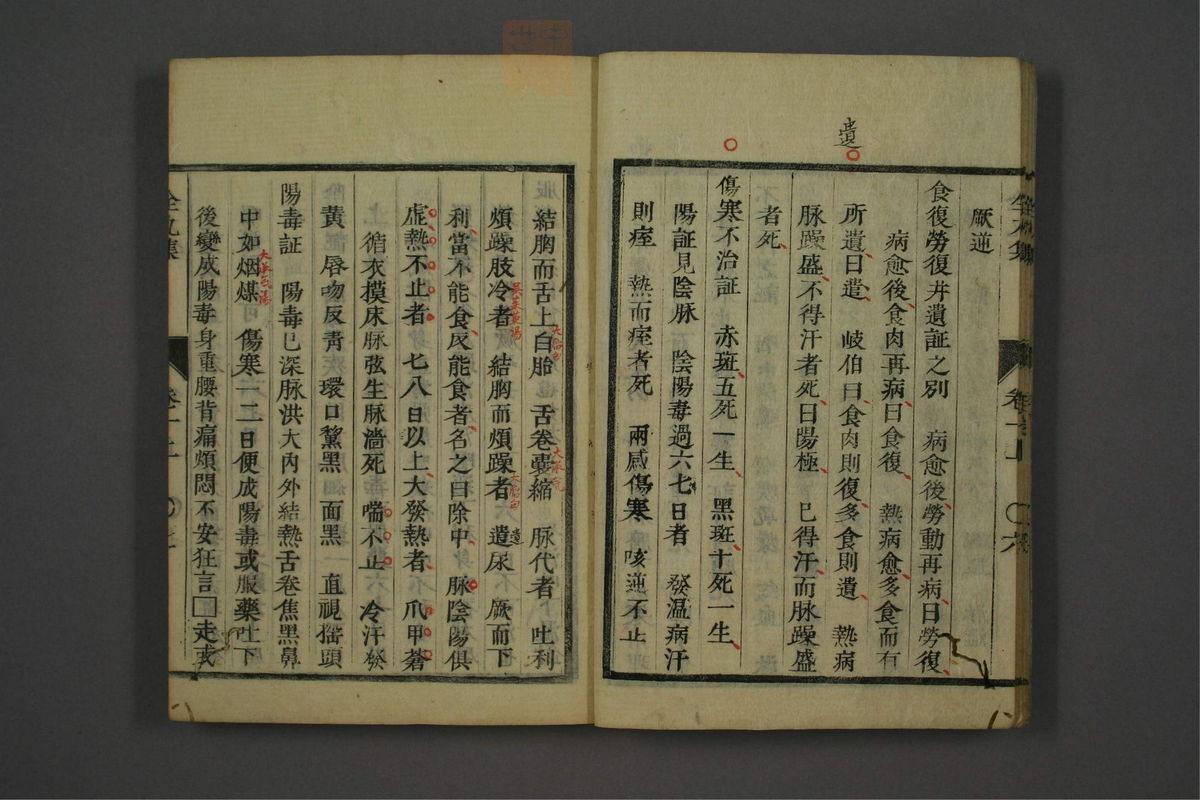 遺
厥逆
食復勞復并遺証之別　病愈後勞動再病曰勞復
病愈後食肉再病曰食復　熱病愈多食而有
所遺曰遺　岐伯曰食肉則復多食則遺　熱病
脉躁盛不得汗者死曰陽極　已得汗而脉躁盛
者死
傷寒不治証　赤斑五死一生　黑斑十死一生
陽証見陰脉　陰陽毒過六七日者　發温病汗
則痓　熱而痓者死　兩感傷寒　咳逆不止
結胸而舌上白胎　舌卷囊縮　脉代者　吐利
煩躁肢冷者　結胸而煩躁者　遺尿　厥而下
利當不能食反能食者名之曰除中　脉陰陽俱
虛熱不止者　七八日以上大發熱者　爪甲青
循衣摸床脉弦生脉濇死　喘不止　冷汗發
黃　唇吻反青　環口黧黑　面黑　直視搖頭
陽毒証　陽毒已深脉洪大內外結熱舌卷焦黑鼻
中如烟煤　傷寒一二日便成陽毒或服藥吐下
後變成陽毒身重腰背痛煩悶不安狂言□走或